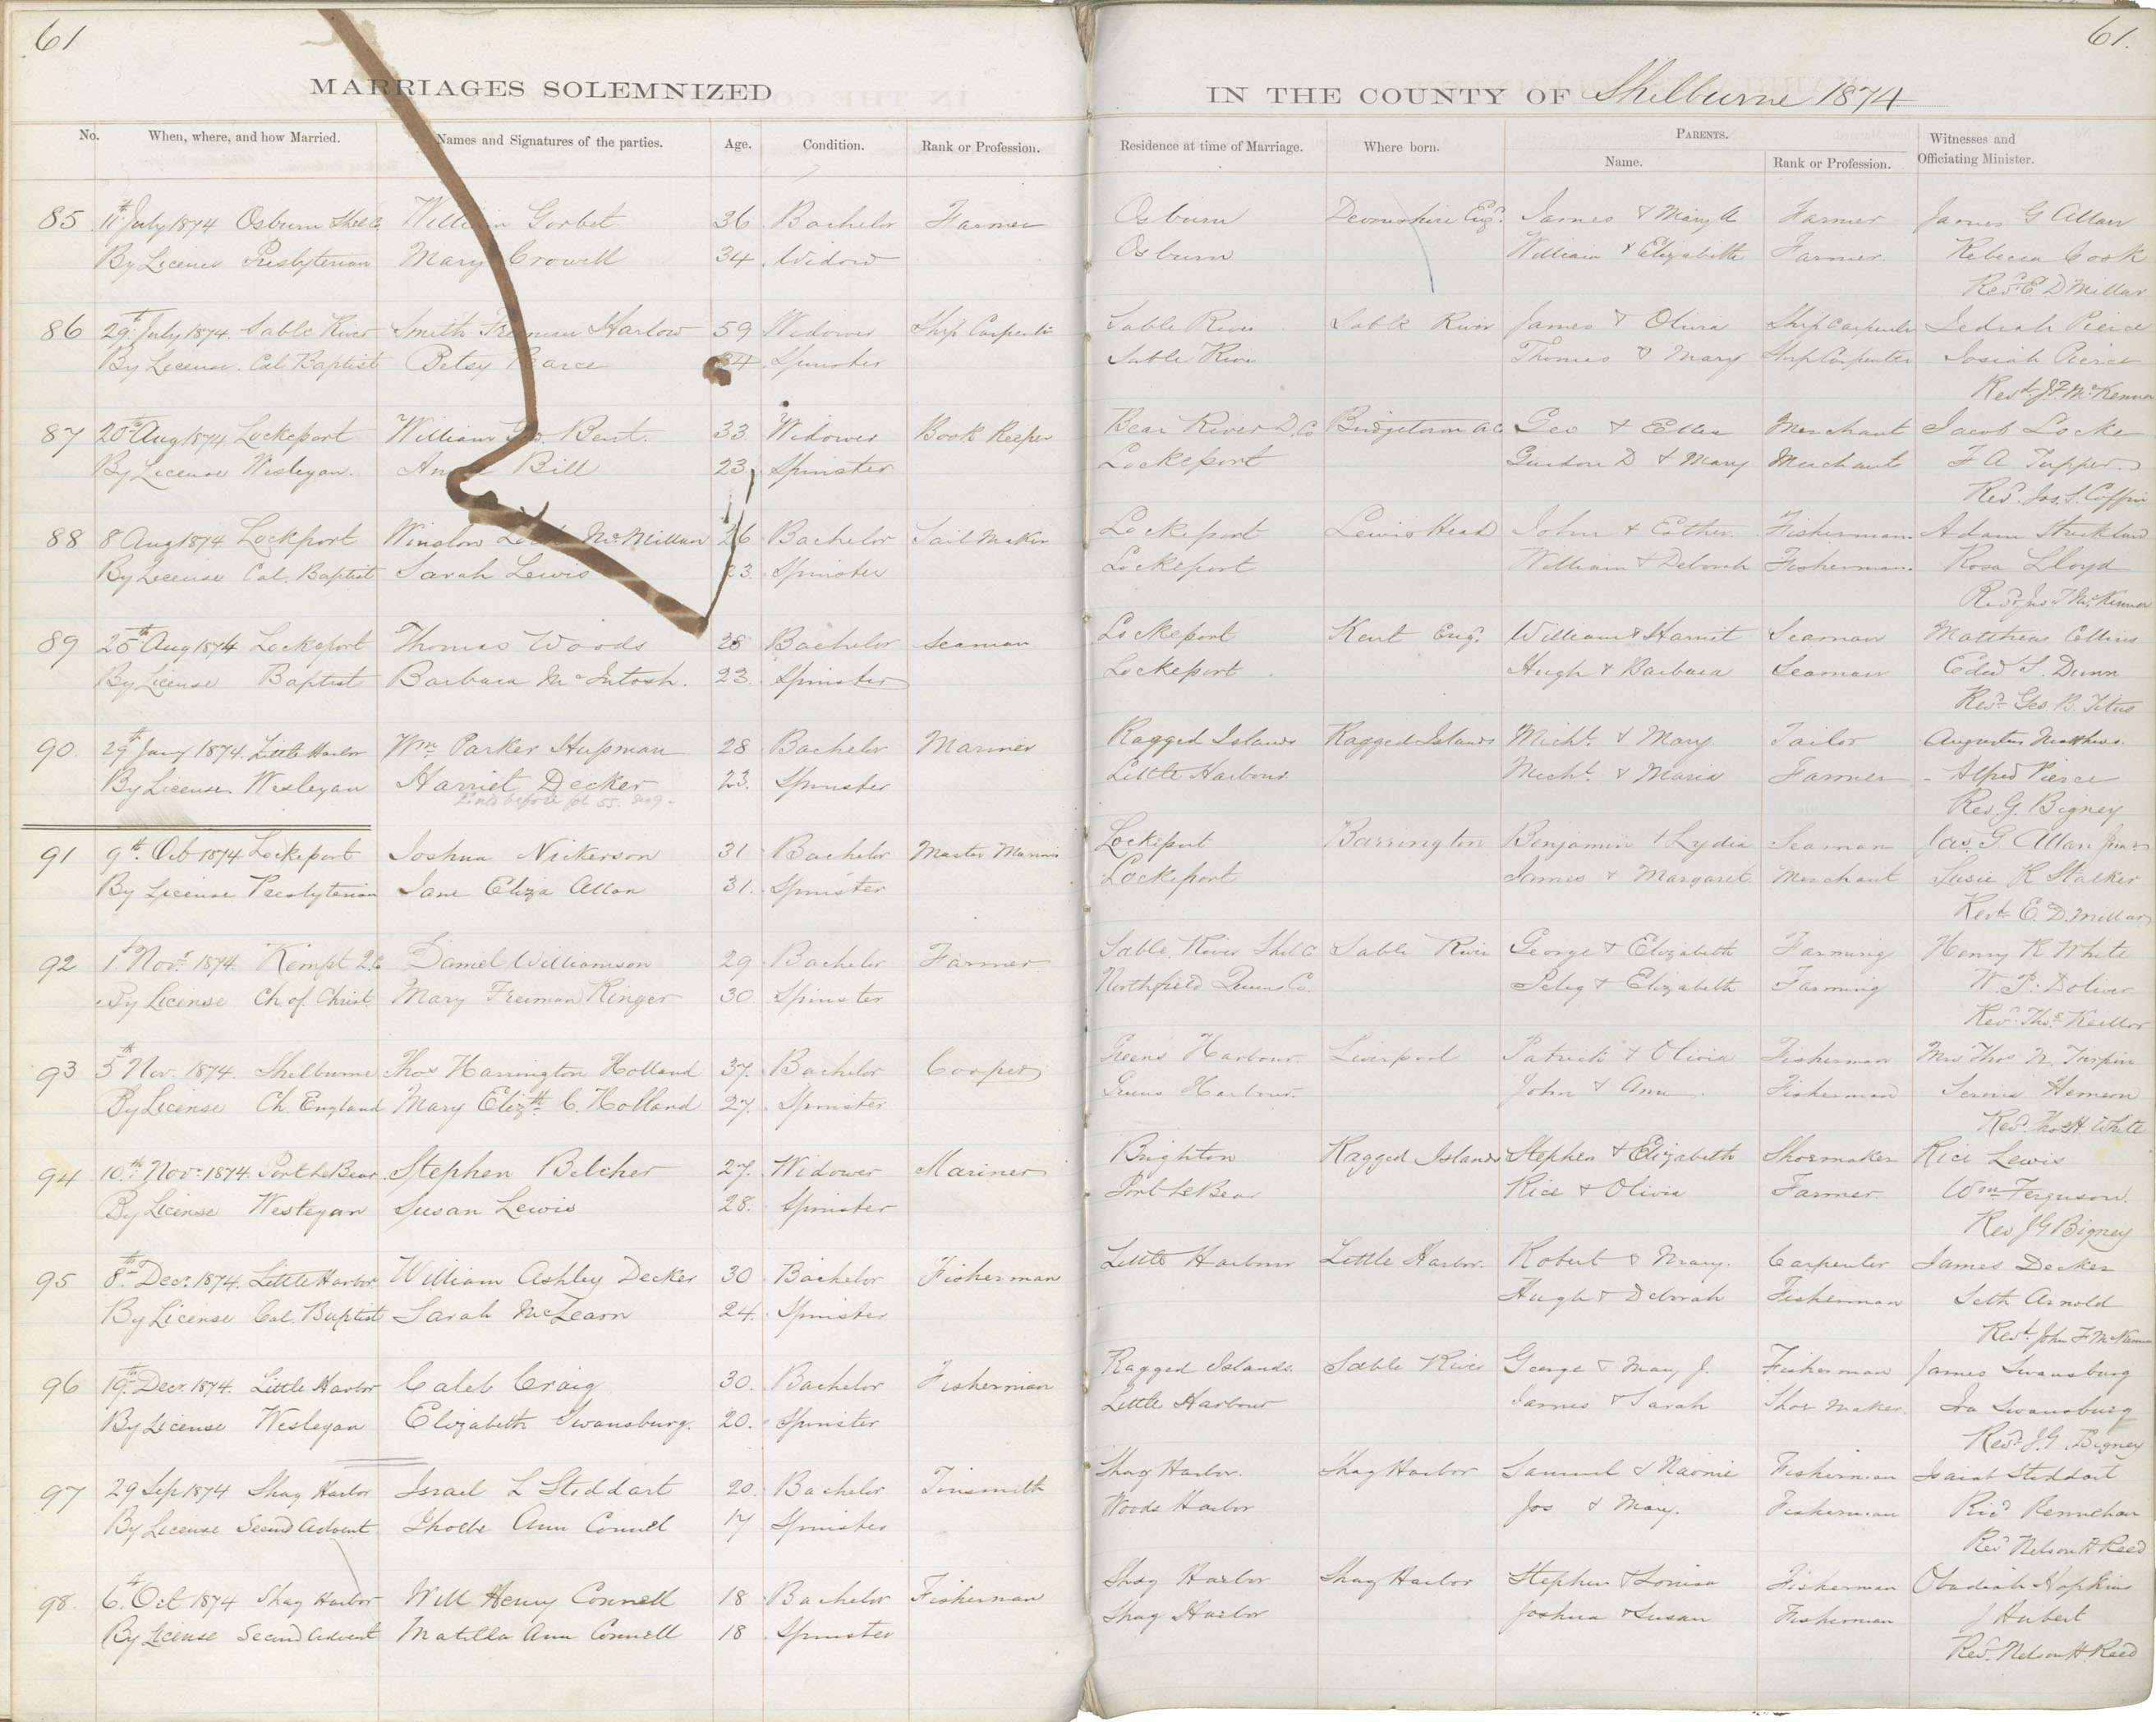 61
61.
MARRIAGES SOLEMNIZED
IN THE COUNTY OF Shelburne 1874
No. When, where, and how Married. Names and Signatures of the parties. Age. Condition. Rank or Profession. Residence at time of Marriage. Where born. PARENTS. Name. Rank or Profession. Witnesses and Officiating Minister.
85 11th July 1874 Osburn Shel Co William Gorbet 36 Bachelor Farmer Osburn Devonshire Engd. James & Mary A Farmer James G Allan
By License Presbyterian Mary Crowell 34 Widow Osburn William & Elizabeth Farmer. Rebecca Cook
Revd. E D Millar
86 29th July 1874. Sable River Smith Freeman Harlow 59 Widower Ship Carpenter Sable River Sable River James & Olivia Ship Carpenter Jediah Pierce
By License. Cal. Baptist Betsy Pearce 34 Spinster Sable River Thomas & Mary Ship Carpenter Josiah Pierce
Revd. J F McKenna
87 20th Aug 1874 Lockeport William Bent. 33 Widower Book Keeper Bear River D. Co Bridgetown A C Geo & Ellen Merchant Jacob Locke
By License Wesleyan. Bill 23 Spinster Lockeport Gurdon D & Mary Merchant F A Tupper
Revd. Jos. S. Coffin
88 8 Aug 1874 Lockport Winslow Locke McMillan 26 Bachelor Sail Maker Lockeport Lewis Head John & Esther. Fisherman. Adam Strickland
By License Cal. Baptist Sarah Lewis 23. Spinster Lockeport William & Deborah Fisherman. Rosa Lloyd
Revd. Jno F McKenna
89 25th Aug 1874 Lockeport Thomas Woods 28 Bachelor Seaman Lockeport Kent Eng. William & Harriet Seaman Matthew Collins
By License Baptist Barbara McIntosh. 23. Spinster Lockeport Hugh & Barbara Seaman Edwd S. Dunn
Revd. Geo. B. Titus
90. 29th Jany 1874. Little Harbor Wm. Parker Hupman 28 Bachelor Mariner Ragged Islands Ragged Islands Michl. & Mary Tailor Augustus Matthews.
By License. Wesleyan Harriet Decker 23. Spinster Little Harbour. Michl. & Maria Farmer Alfred Pierce
Rev G. Bigney
91 9th. Oct 1874 Lockeport Joshua Nickerson 31 Bachelor Master Mariner Lockeport Barrington Benjamin & Lydia Seaman Jas. G. Allan Junr
By License Presbyterian Jane Eliza Allan 31. Spinster Lockeport James & Margaret Merchant Susie R Stalker
Revd. E. D. Millar
92 1st Novr. 1874. Kempt Q. Co Daniel Williamson 29 Bachelor Farmer Sable River Shel C Sable River George & Elizabeth Farming Henry K White
By License Ch. of Christ Mary Freeman Ringer 30. Spinster Northfield Queens Co. Peleg & Elizabeth Farming W. P. Doliver
Revd. Thos. Keillor
93 5th Nov. 1874. Shelburne Thos Harrington Holland 37. Bachelor Cooper Greens Harbour Liverpool Patrick & Olivia Fisherman Mrs Thos N. Turpin
By License Ch. England Mary Elizth. C. Holland 27. Spinster Greens Harbour. John & Ann Fisherman
Revd. Thos H. White
94 10th. Novr. 1874. Port Le Bear Stephen Belcher 27. Widower Mariner Brighton Ragged Islands Stephen & Elizabeth Shoemaker Rice Lewis
By License Wesleyan Susan Lewis 28. Spinster Port Le Bear Rice & Olivia Farmer Wm Ferguson.
Rev J G Bigney
95 8th. Decr. 1874. Little Harbor William Ashley Decker 30 Bachelor Fisherman Little Harbour Little Harbor. Robert & Mary. Carpenter James Decker
By License Cal. Baptist Sarah McLearn 24. Spinster Hugh & Deborah Fisherman Seth Arnold
Revd. John F McKenna
96 19th. Decr. 1874. Little Harbor Caleb Craig 30. Bachelor Fisherman Ragged Islands. Sable River George & Mary J. Fisherman James Swansburg
By License Wesleyan Elizabeth Swansburg. 20. Spinster Little Harbour James & Sarah Shoe Maker. Ira Swansburg
Revd J. G. Bigney
97 29 Sep 1874 Shag Harbor Israel L Stoddart 20. Bachelor Tinsmith Shag Harbor. Shag Harbor Samuel & Naomie Fisherman Isaiah Stoddart
By License Second Advent Phoebe Ann Connel 17 Spinster Woods Harbor Jos & Mary. Fisherman
Revd Nelson H Reed
98. 6th. Oct 1874 Shag Harbor Will Henry Connell 18 Bachelor Fisherman Shag Harbor Shag Harbor Stephen & Louisa Fisherman Obadiah Hopkins
By License Second Advent Matilda Ann Connell 18 Spinster Shag Harbor Joshua & Susan Fisherman J Hubert
Revd. Nelson H. Reed